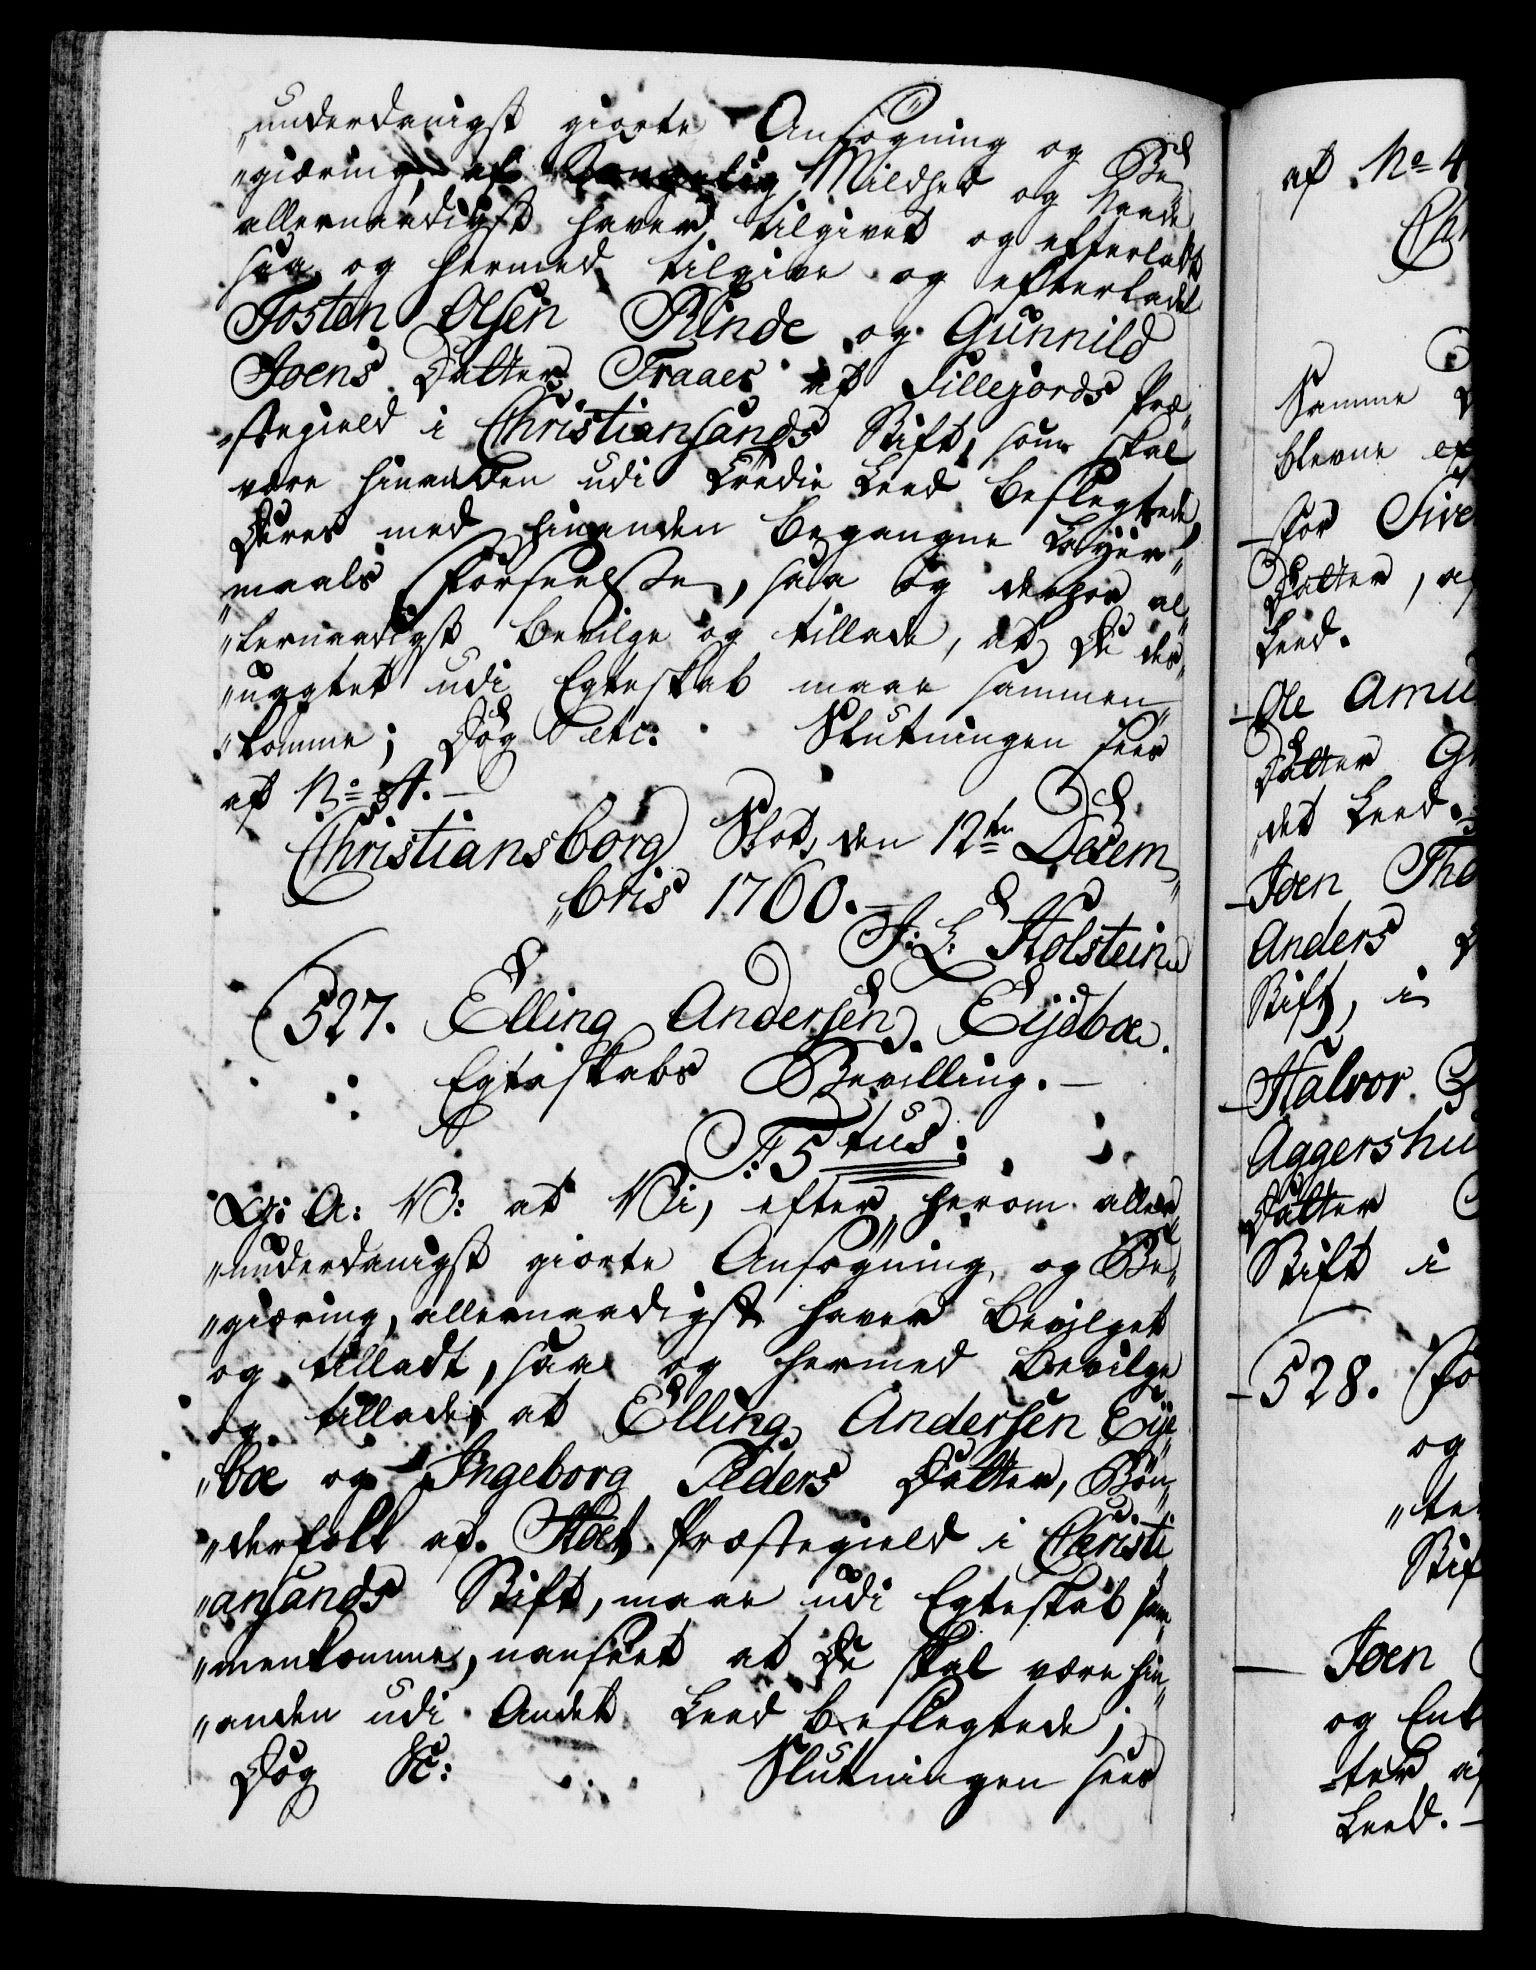 "underdanigst giorte Ansøgning og Be
"giæring, af Kongelig Mildhed og Naade
allernaadigst haver tilgivet og efterladt
saa og hermed tilgive og efterlade
Tosten Olsen Rinde og Gunnild
Joens Datter Traaes af Sillejords Præ"
"stegield i Christiansands Stift, som skal
være hinanden udi tredie Leed beslegtede
Deres med hinanden begangne Leyer"
"maals Forseelse, saa og derhos al"
"lernaadigst bevilge og tillade, at De des"
"uagtet udi Egteskab maae sammen"
"komme; Dog etc: Slutningen sees
af No 4.
Christiansborg Slot, den 12te Decem"
"bris 1760.
J: L: Holstein
527. Elling Andersen Eijdboe.
Egteskabs Bevilling.
F: 5tus:
G: A: V: at Vi, efter herom aller"
"underdanigst giorte Ansøgning, og Be"
"giæring, allernaadigst haver bevilget
og tilladt, saa og hermed bevilge
og tillade, at Elling Andersen Eijd
"boe og Ingeborg Peders Datter, Bøn"
"derfolk af Præstegield i Christi
"ansands Stift, maae udi Egteskab sam
"menkomme, uanseet at De skal være hin"
"anden udi Andet Leed beslegtede;
Dog &c: Slutningen sees
af No 4
Samme
blevne
for
Datter,
Leed.
Ole
Datter
det Leed.
Joen
Anders
Stift, i
Halvor
Aggershu
Datter
Stift i
528.
og
Joen
og
Leed.